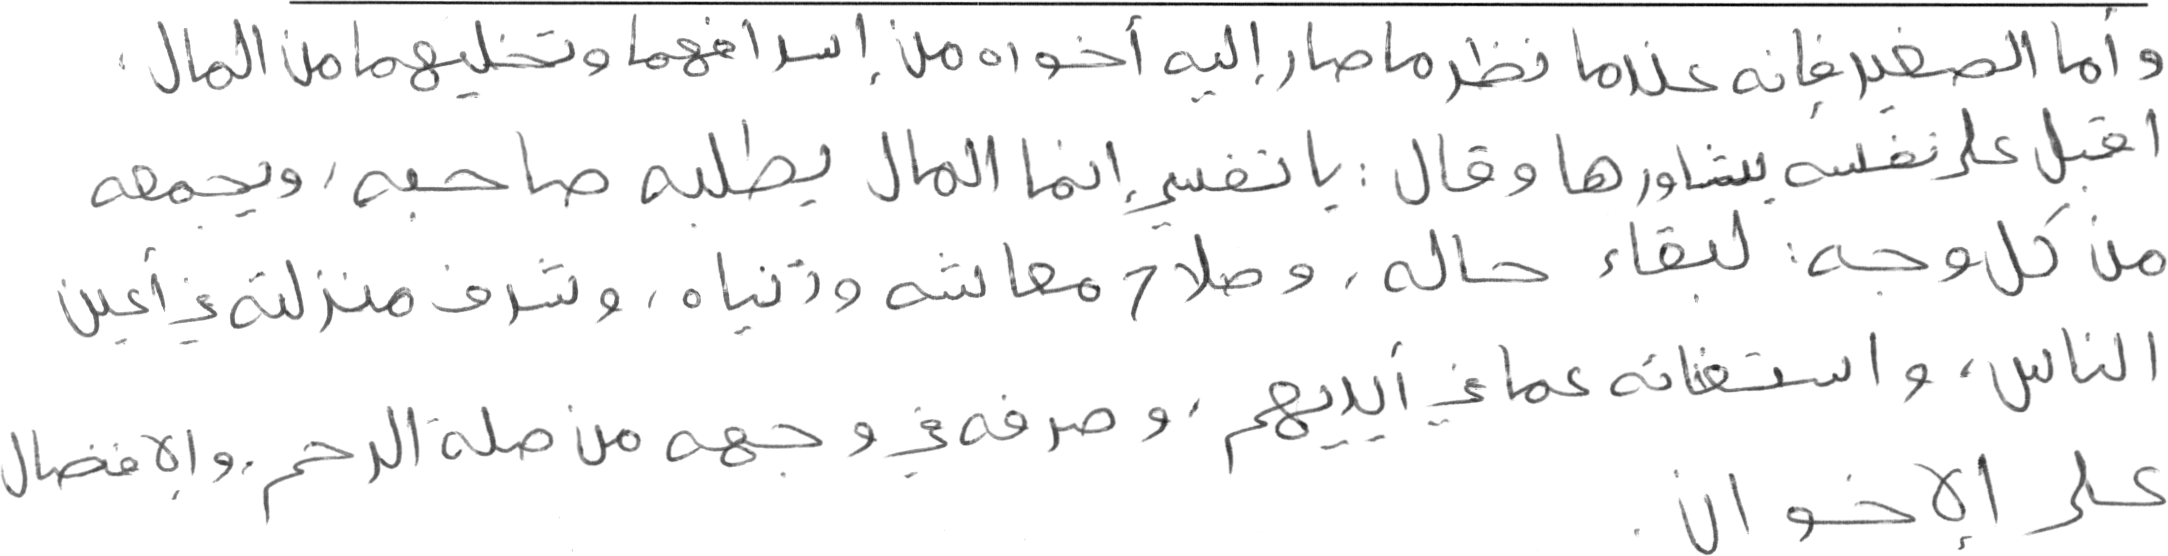 وأما الصغير فإنه عندما نظر ما صار إليه أخواه من إسرافهما وتخليهما من المال،
اقبل على نفسه يشاورها وقال: يا نفسي إنما المال يطلبه صاحبه، ويجمعه
من كل وجه: لبقاء حاله، وصلاح معاشه ودنياه، وشرف منزلته في أعين
الناس، واستغنائه عما في أيديهم، وصرفه في وجهه من صلة الرحم، والإفضال
على الإخوان.